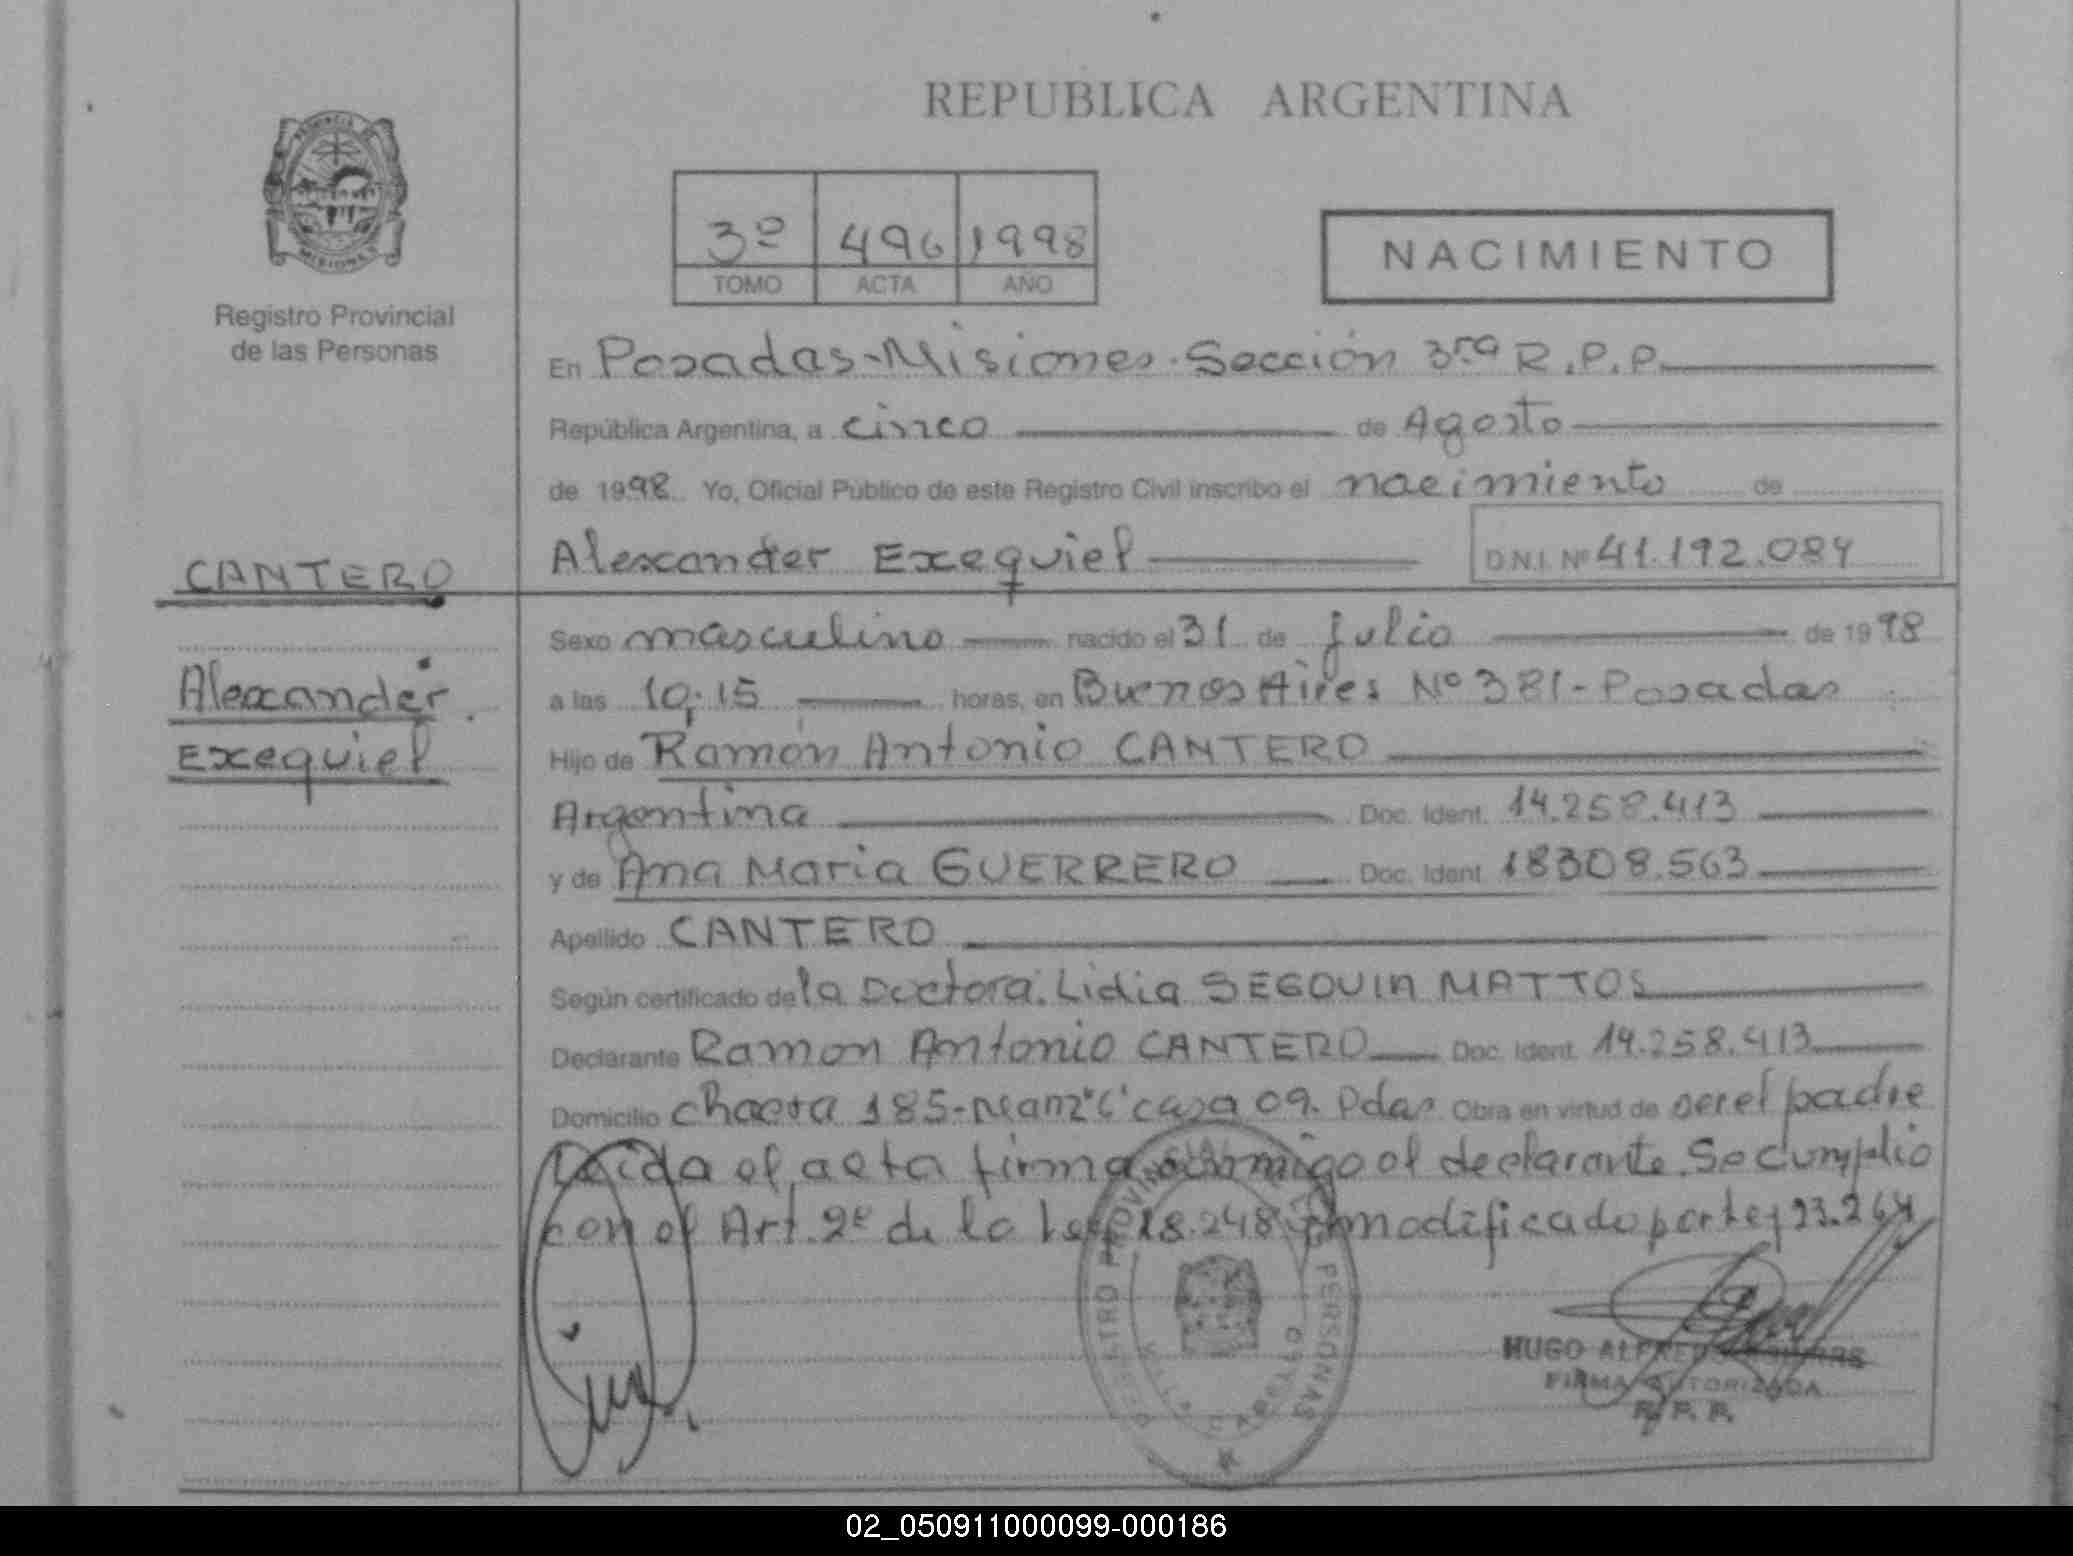 REPUBLICA ARGENTINA
PROVINCIA DE
MISIONES
Registro Provincial
de las Personas
3º 496 1998
TOMO ACTA AÑO
NACIMIENTO
En Posadas-Misiones-Sección 3ra R.P.P.
República Argentina, a cinco de Agosto
de 1998 Yo, Oficial Público de este Registro Civil inscribo el nacimiento de
Alexander Exequiel D.N.I. Nº 41.192.084
CANTERO
Alexander
Exequiel
Sexo masculino nacido el 31 de julio de 1998
a las 10:15 horas, en Buenos Aires Nº 381-Posadas
Hijo de Ramón Antonio CANTERO
Argentina Doc. Ident. 14.258.413
y de Ana Maria GUERRERO Doc. Ident. 18308.563
Apellido CANTERO
Según certificado de la Doctora: Lidia SEGOVIA MATTOS
Declarante Ramon Antonio CANTERO Doc. Ident. 14.258.413
Domicilio chacra 185-Manz"C" casa 09. Pdas Obra en virtud de ser el padre
Leida el acta firma conmigo el declarante. Se cumplio
con el Art. 2º de la Ley 18.248 modificado por ley 23.264
REGISTRO PROVINCIAL DE LAS PERSONAS
VILLA CABELLO
HUGO ALFREDO
FIRMA AUTORIZADA
R. P. P.
02_050911000099-000186